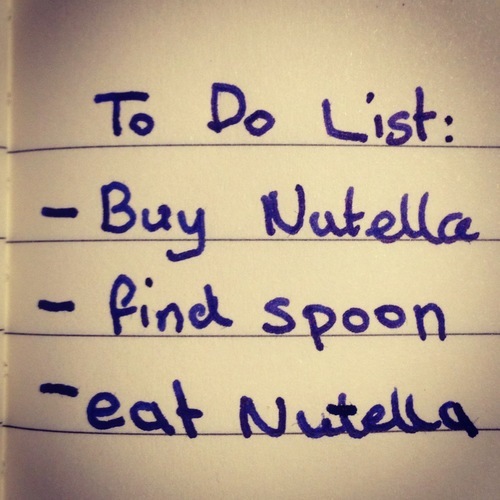 To Do List:
- Buy Nutella
- find spoon
- eat Nutella